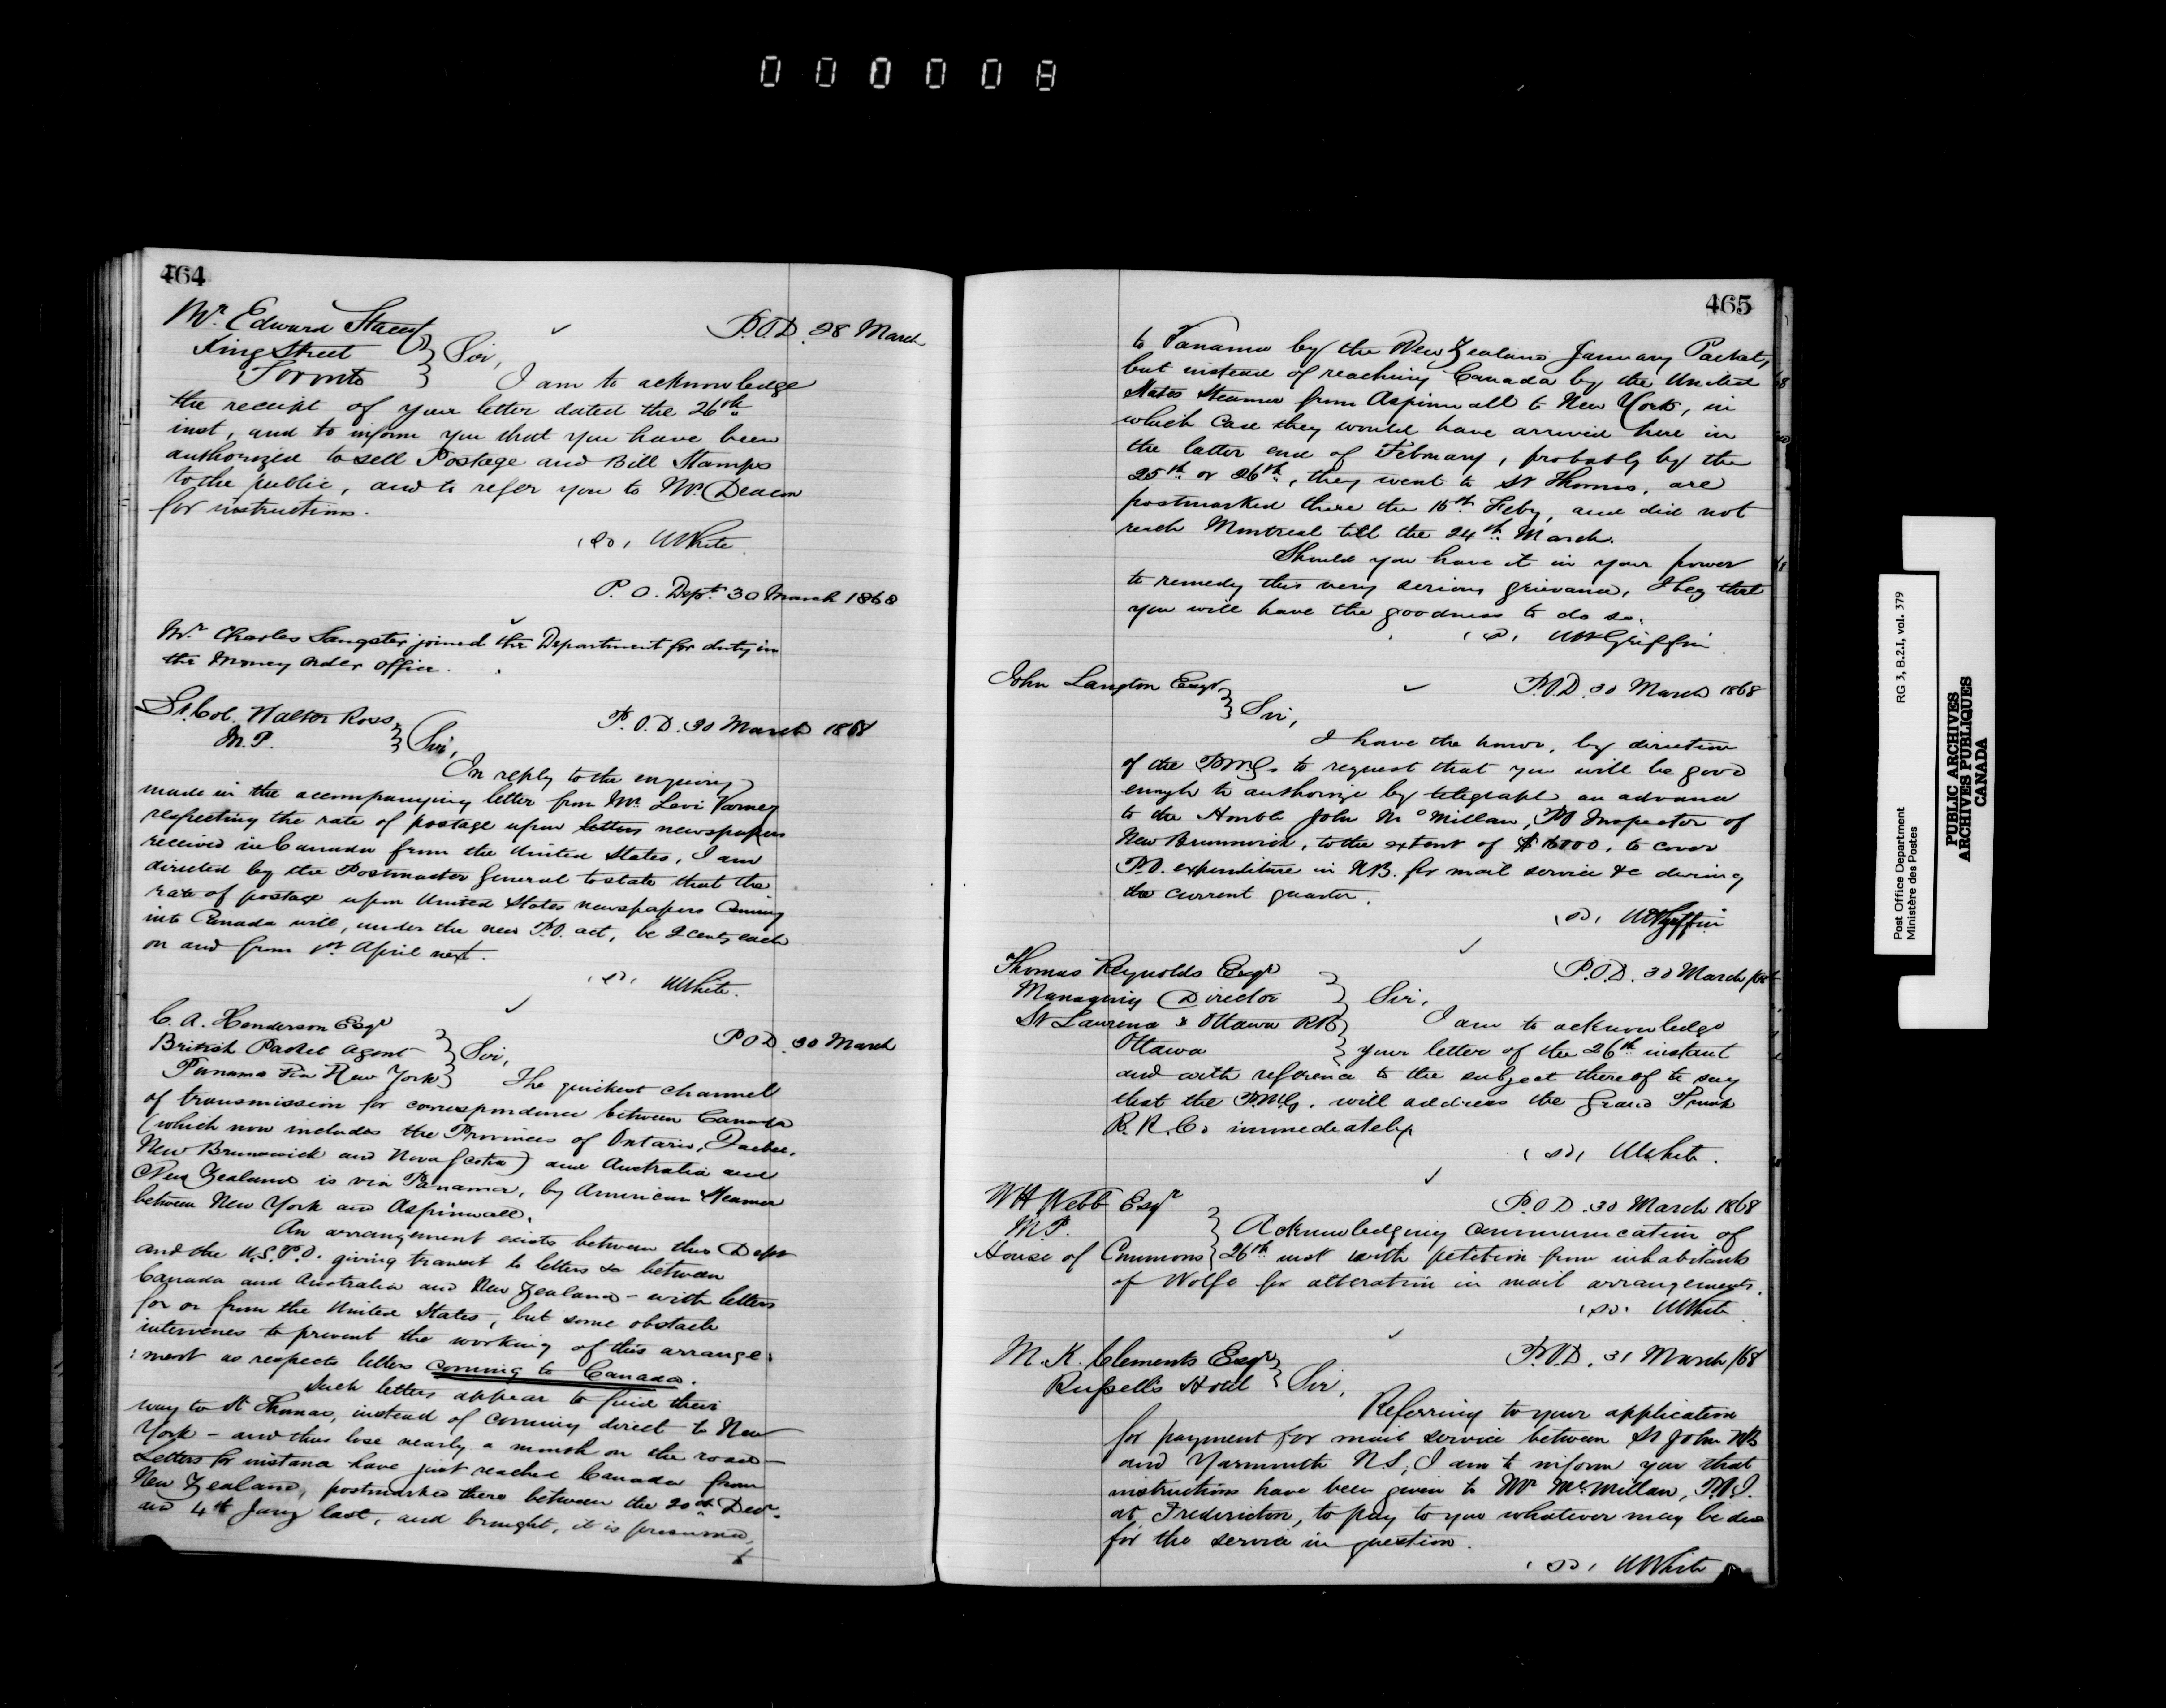 000008
464
Mr. Edward Stacey
King Street
Toronto
P.O.D. 28 March
Sir,
I am to acknowledge
the receipt of your letter dated the 26th
inst, and to inform you that you have been
authorized to sell Postage and Bill Stamps
to the public, and to refer you to Mr. Deacon
for instructions.
(sd) W White.
P. O. Dept. 30 March 1868
Mr. Charles Sangster joined the Department for duty in
the Money Order Office.
Lt. Col. Walter Ross
M.P.
P.O.D. 30 March 1868
Sir,
In reply to the enquiry
made in the accompanying letter from Mr. Levi Varney
respecting the rate of postage upon letters newspapers
received in Canada from the United States, I am
directed by the Postmaster General to state that the
rate of postage upon United States newspapers coming
into Canada will, under the new P.O. act, be 2 cents each
on and from 1st April next.
(sd) W White.
C. A. Henderson Esqr
British Packet Agent
Panama via New York
P O D. 30 March
Sir,
The quickest channel
of transmission for correspondence between Canada
(which now includes the Provinces of Ontario, Quebec,
New Brunswick and Nova Scotia) and Australia and
New Zealand is via Panama, by American Steamer
between New York and Aspinwall.
An arrangement exists between this Dept
and the U.S.P.O. giving transit to letters &c between
Canada and Australia and New Zealand - with letters
for or from the United States, but some obstacle
intervenes to prevent the working of this arrange:
:ment as respects letters coming to Canada.
Such letters appear to find their
way to St Thomas, instead of coming direct to New
York - and thus lose nearly a month on the road -
Letters for instance have just reached Canada from
New Zealand, postmarked there between the 20th Decr.
and 4th Jany last, and brought, it is presumed,
465
to Panama by the New Zealand January Packet,
but instead of reaching Canada by the United
States Steamer from Aspinwall to New York, in
which case they would have arrived here in
the latter end of February, probably by the
25th or 26th, they went to St Thomas, are
postmarked there the 15th Feby, and did not
reach Montreal till the 24th March.
Should you have it in your power
to remedy this very serious grievance, I beg that
you will have the goodness to do so.
(sd) WH Griffin.
John Langton Esqr
P.O.D. 30 March 1868
Sir,
I have the honor, by direction
of the P.M.G. to request that you will be good
enough to authorize by telegraph an advance
to the Honble John McMillan, PO Inspector of
New Brunswick, to the extent of $16000, to cover
P.O. expenditure in N.B. for mail service &c during
the current quarter.
(sd) WHGriffin
Thomas Reynolds Esqr
Managing Director
St Laurence & Ottawa RR
Ottawa
P.O.D. 30 March/68
Sir,
I am to acknowledge
your letter of the 26th instant
and with reference to the subject thereof to say
that the P.M.G. will address the Grand Trunk
R. R. Co immediately.
(sd) W White.
W H Webb Esqr
M.P.
House of Commons
P.O.D. 30 March 1868
Acknowledging communication of
26th inst with petition from inhabitants
of Wolfe for alteration in mail arrangements.
(sd) W White.
M. K. Clements Esqr
Russell's Hotel
P.O.D. 31 March/68
Sir,
Referring to your application
for payment for mail service between St John NB
and Yarmouth N.S, I am to inform you that
instructions have been given to Mr McMillan, P.O.I.
at Fredericton, to pay to you whatever may be due
for the service in question.
(sd) W White
Post Office Department RG 3, B.2.1, vol. 379
Ministère des Postes
PUBLIC ARCHIVES
ARCHIVES PUBLIQUES
CANADA